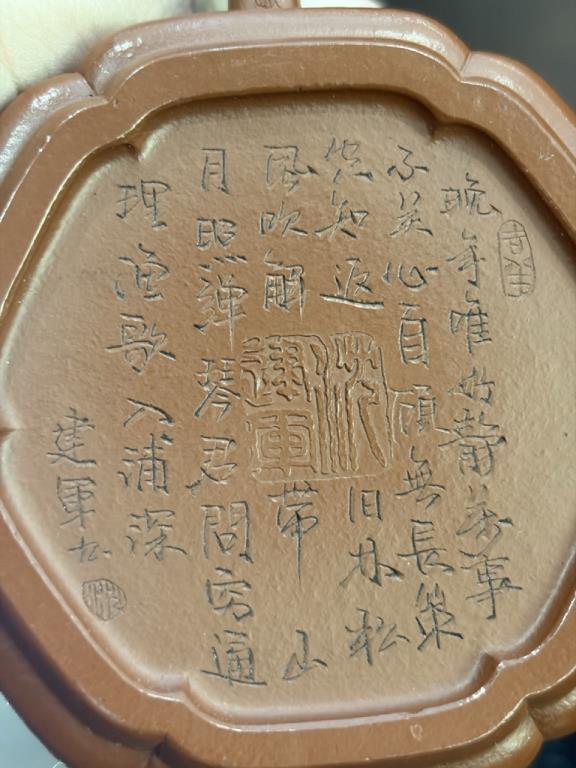 晚年唯好静萬事
不关心自顧無長策
空知返旧林松
風吹解带山
月照彈琴君問穷通
理漁歌入浦深
建軍书
建軍